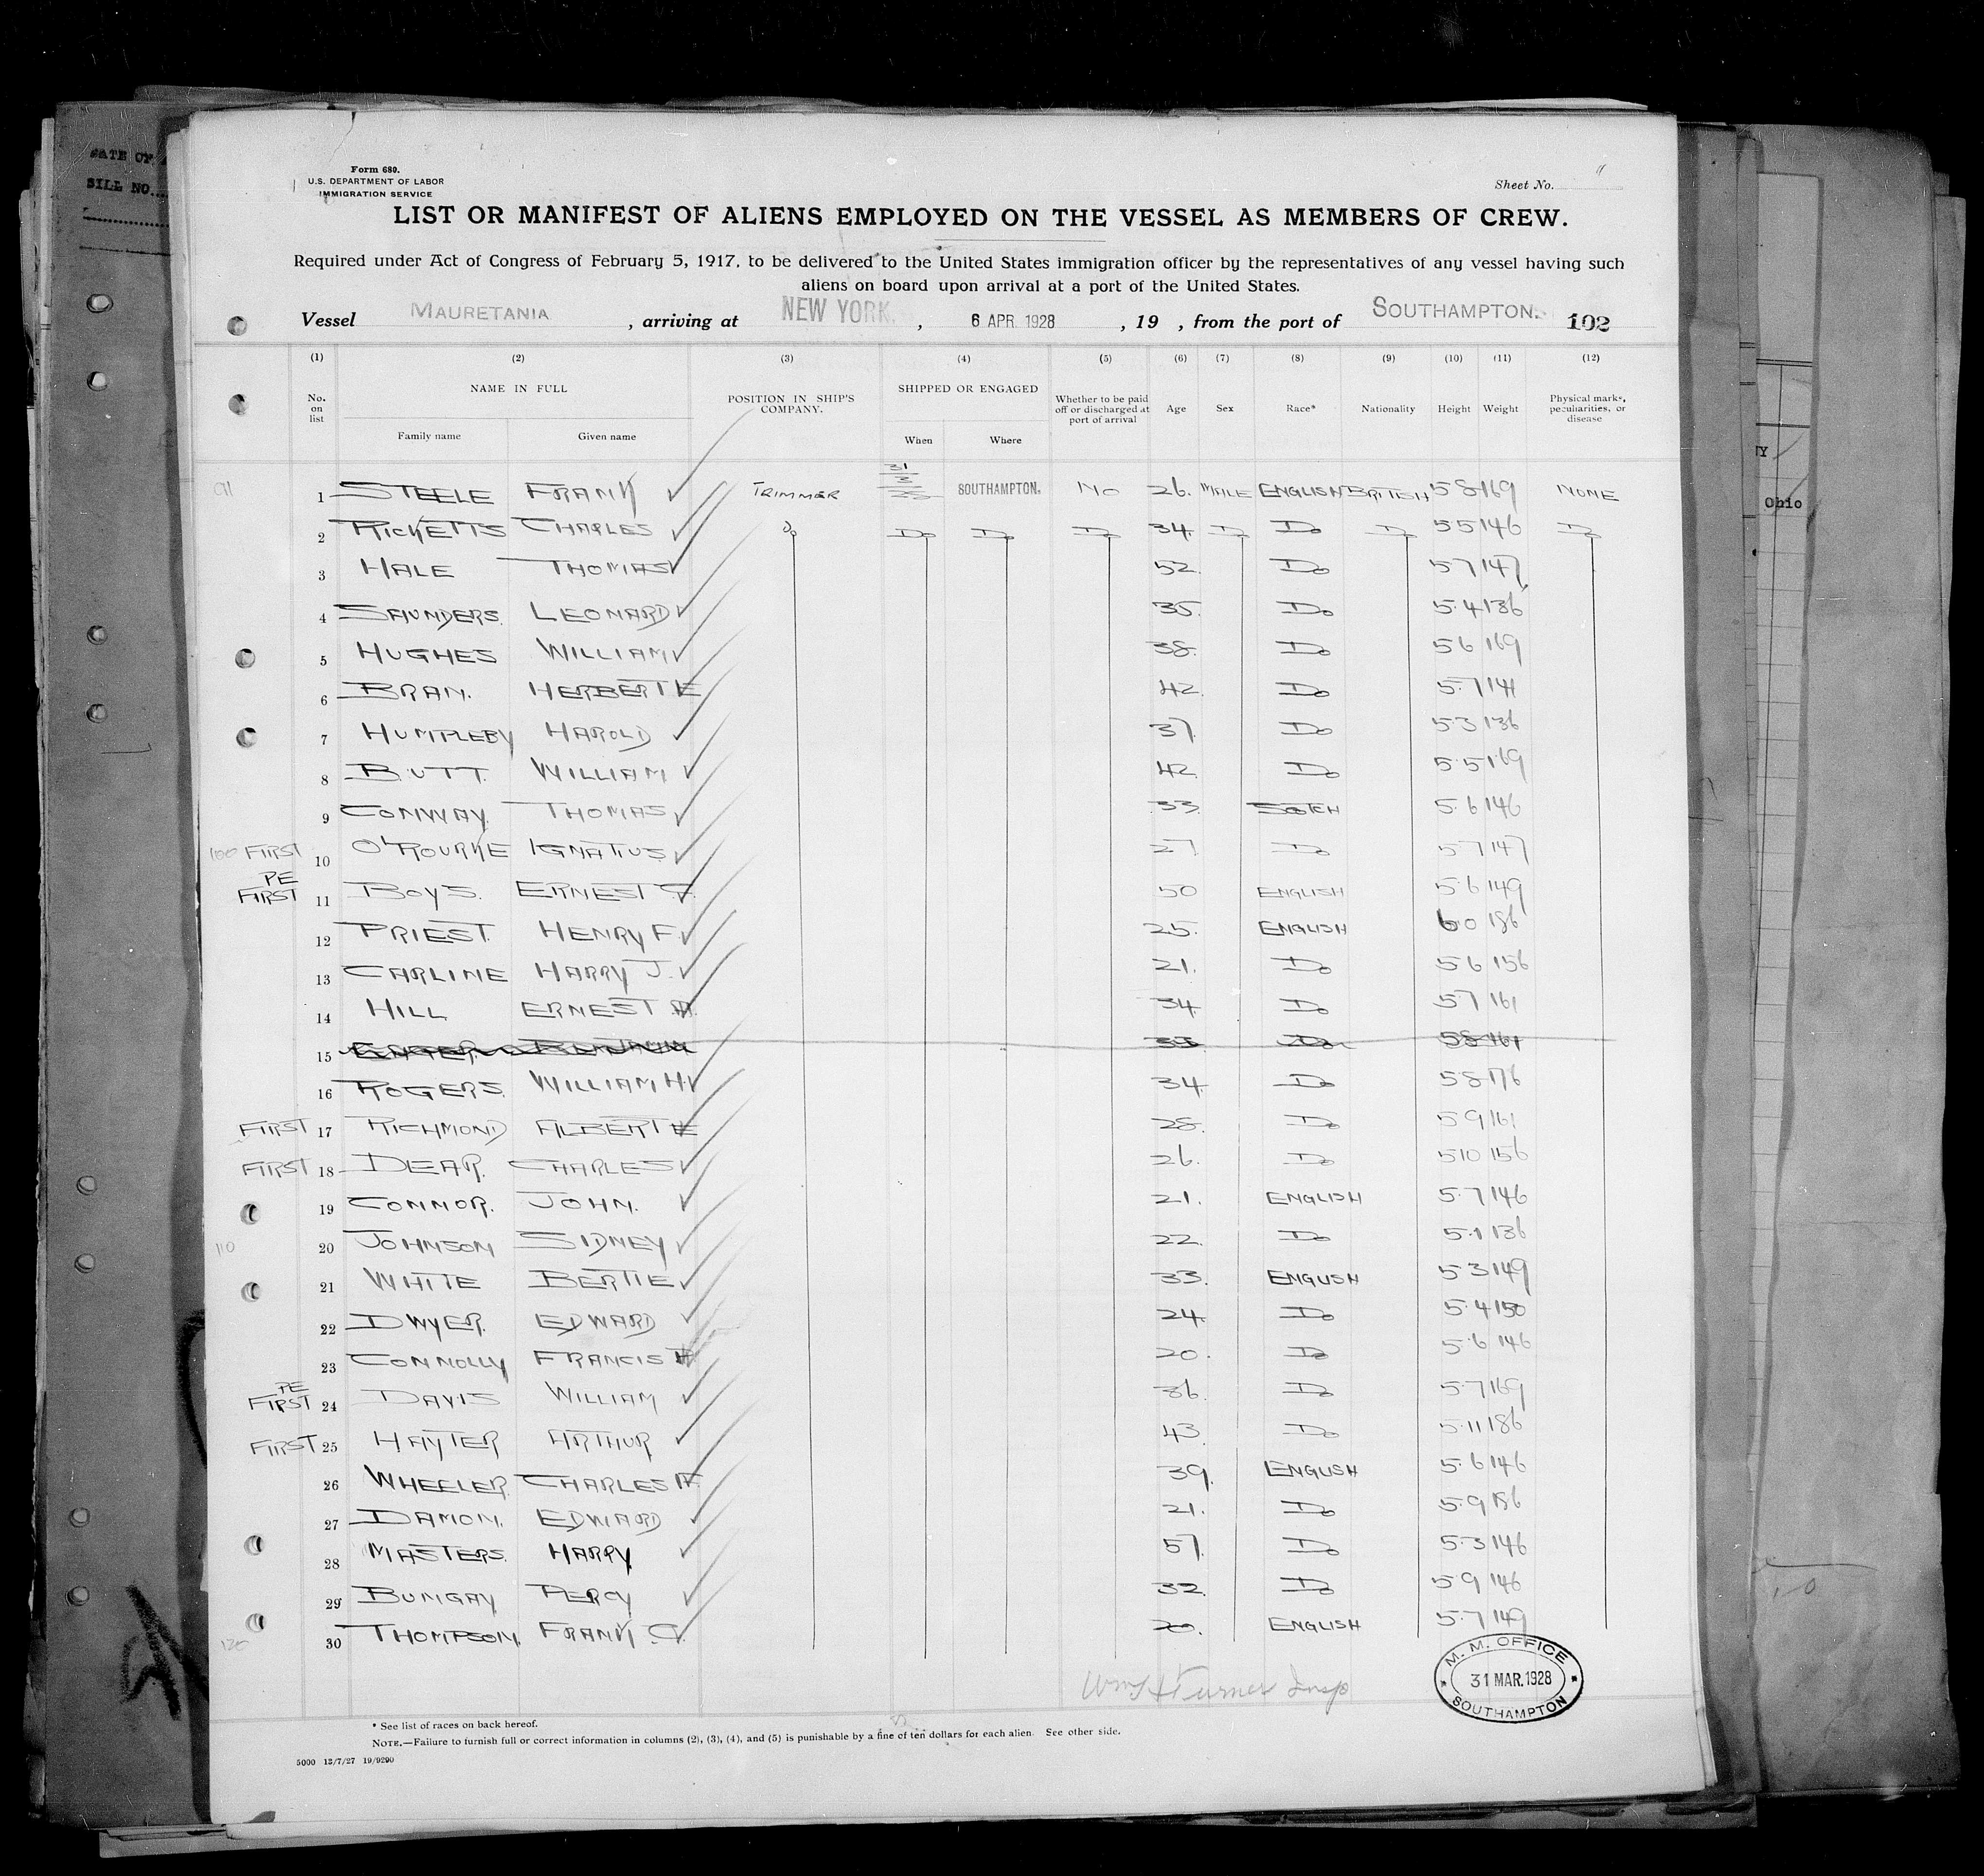 DATE OF
BILL NO.
Form 680.
U.S. DEPARTMENT OF LABOR
IMMIGRATION SERVICE
Sheet No.
LIST OR MANIFEST OF ALIENS EMPLOYED ON THE VESSEL AS MEMBERS OF CREW.
Required under Act of Congress of February 5, 1917, to be delivered to the United States immigration officer by the representatives of any vessel having such
aliens on board upon arrival at a port of the United States.
Vessel MAURETANIA, arriving at NEW YORK, 6 APR 1928, 19 , from the port of SOUTHAMPTON. 102
(1) (2) (3) (4) (5) (6) (7) (8) (9) (10) (11) (12)
No. on list NAME IN FULL Family name Given name POSITION IN SHIP'S COMPANY. SHIPPED OR ENGAGED When Where Whether to be paid off or discharged at port of arrival Age Sex Race* Nationality Height Weight Physical marks, peculiarities, or disease
91 1 STEELE FRANK TRIMMER 31/3/28 SOUTHAMPTON. NO 26. MALE ENGLISH BRITISH 5 8 169 NONE
2 RICKETTS CHARLES Do Do Do Do 34. Do Do Do 5 5 146 Do
3 HALE THOMAS 52. Do 5 7 147
4 SAUNDERS. LEONARD 35. Do 5.4 136
5 HUGHES WILLIAM 38. Do 5 6 169
6 BRAN. HERBERT E 42. Do 5.7 141
7 HUMPLEBY HAROLD 37. Do 5.3 136
8 BUTT. WILLIAM 42. Do 5.5 169
9 CONWAY. THOMAS 33. SCOTCH 5.6 146
100 FIRST 10 O'ROURKE IGNATIUS. 27 Do 5 7 147
PE
FIRST 11 BOYS. ERNEST G. 50 ENGLISH 5.6 149
12 PRIEST. HENRY F. 25. ENGLISH 6 0 186
13 CARLINE HARRY J. 21. Do 5 6 156
14 HILL ERNEST 34. Do 5 7 161
15 Do 5 8 161
16 ROGERS. WILLIAM H. 34. Do 5 8 176
FIRST 17 RICHMOND ALBERT E 28. Do 5 9 161
FIRST 18 DEAR. CHARLES 26. Do 5 10 156
19 CONNOR. JOHN. 21. ENGLISH 5.7 146
110 20 JOHNSON SIDNEY 22. Do 5.1 136
21 WHITE BERTIE 33. ENGLISH 5 3 149
22 DWYER. EDWARD 24. Do 5.4 150
23 CONNOLLY FRANCIS 20. Do 5.6 146
PE
FIRST 24 DAVIS WILLIAM 36. Do 5.7 169
FIRST 25 HAYTER ARTHUR 43. Do 5.11 186
26 WHEELER. CHARLES F. 39. ENGLISH 5.6 146
27 DAMON. EDWARD 21. Do 5.9 186
28 MASTERS. HARRY. 57. Do 5.3 146
29 BUNGAY PERCY 32. Do 5 9 146
120 30 THOMPSON. FRANK G. 20. ENGLISH 5.7 149
Wm H Turner Insp
M. M. OFFICE
31 MAR. 1928
SOUTHAMPTON
* See list of races on back hereof.
NOTE.—Failure to furnish full or correct information in columns (2), (3), (4), and (5) is punishable by a fine of ten dollars for each alien. See other side.
5000 13/7/27 19/9290
Ohio